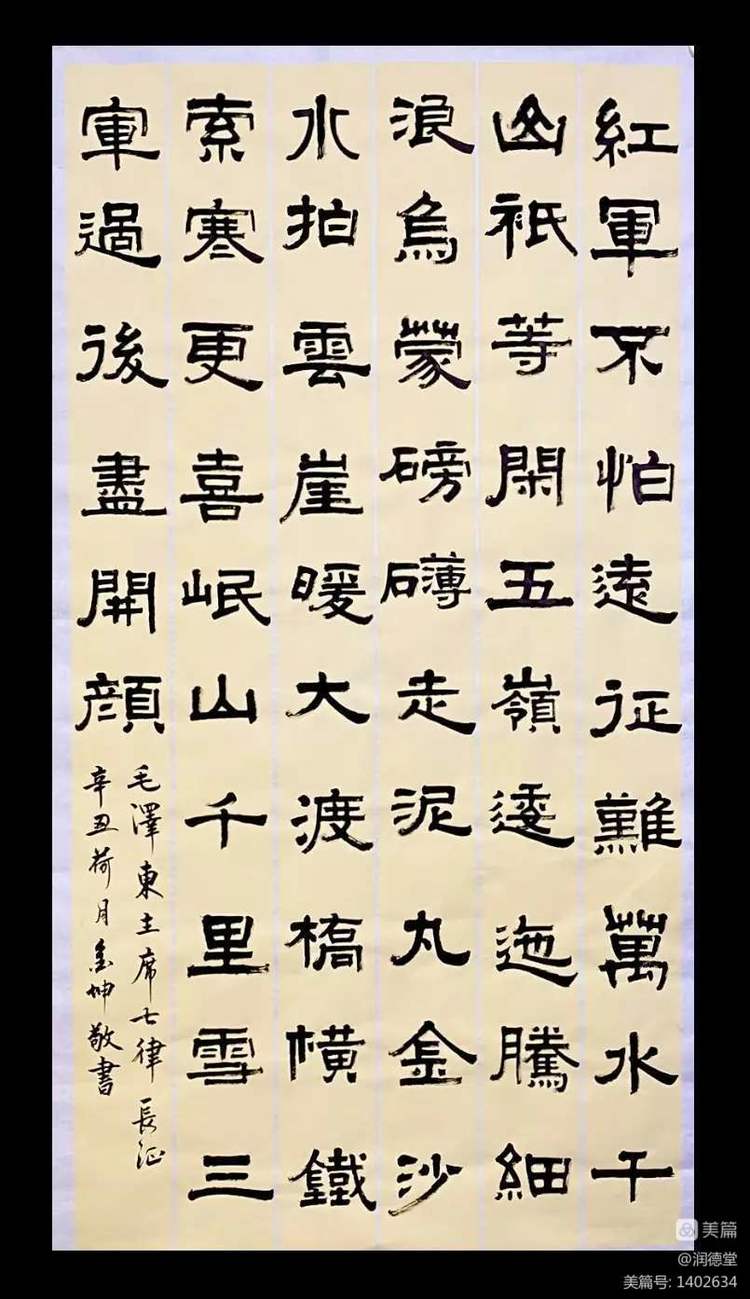 紅軍不怕遠征難萬水千
山祇等閑五嶺逶迤騰細
浪烏蒙磅礴走泥丸金沙
水拍雲崖暖大渡橋橫鐵
索寒更喜岷山千里雪三
軍過後盡開顔
毛澤東主席七律長征
辛丑荷月金坤敬書
美篇
@润德堂
美篇号: 1402634